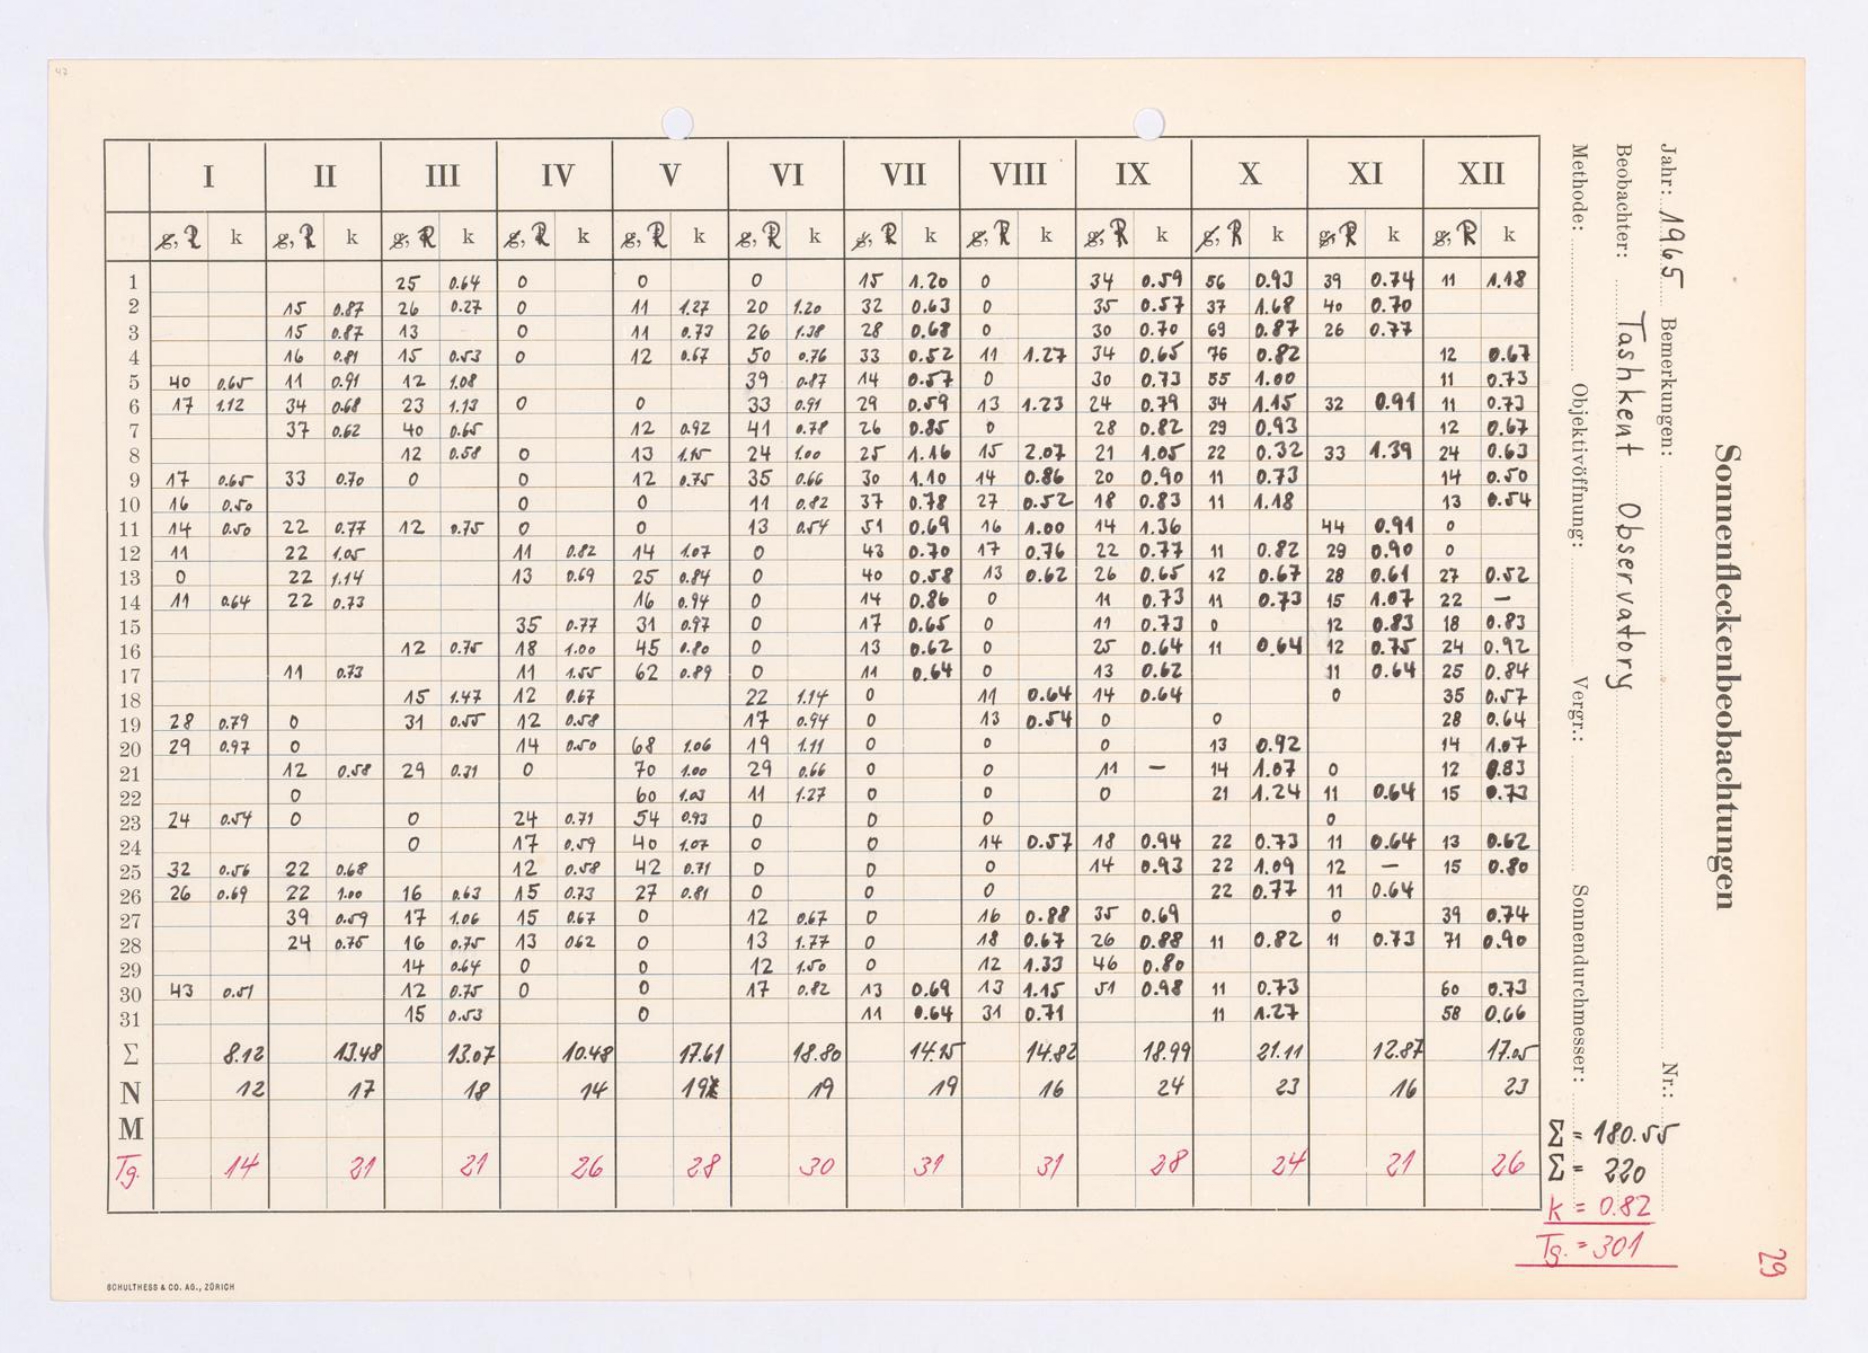 47
I II III IV V VI VII VIII IX X XI XII
g, R k g, R k g, R k g, R k g, R k g, R k g, R k g, R k g, R k g, R k g, R k g, R k
1 25 0.64 0 0 0 15 1.20 0 34 0.59 56 0.93 39 0.74 11 1.18
2 15 0.87 26 0.27 0 11 1.27 20 1.20 32 0.63 0 35 0.57 37 1.68 40 0.70
3 15 0.87 13 0 11 0.73 26 1.38 28 0.68 0 30 0.70 69 0.87 26 0.77
4 16 0.81 15 0.53 0 12 0.67 50 0.76 33 0.52 11 1.27 34 0.65 76 0.82 12 0.67
5 40 0.65 11 0.91 12 1.08 39 0.87 14 0.57 0 30 0.73 55 1.00 11 0.73
6 17 1.12 34 0.68 23 1.13 0 0 33 0.91 29 0.59 13 1.23 24 0.79 34 1.15 32 0.91 11 0.73
7 37 0.62 40 0.65 12 0.92 41 0.78 26 0.85 0 28 0.82 29 0.93 12 0.67
8 12 0.58 0 13 1.15 24 1.00 25 1.16 15 2.07 21 1.05 22 0.32 33 1.39 24 0.63
9 17 0.65 33 0.70 0 0 12 0.75 35 0.66 30 1.10 14 0.86 20 0.90 11 0.73 14 0.50
10 16 0.50 0 0 11 0.82 37 0.78 27 0.52 18 0.83 11 1.18 13 0.54
11 14 0.50 22 0.77 12 0.75 0 0 13 0.54 51 0.69 16 1.00 14 1.36 44 0.91 0
12 11 22 1.05 11 0.82 14 1.07 0 43 0.70 17 0.76 22 0.77 11 0.82 29 0.90 0
13 0 22 1.14 13 0.69 25 0.84 0 40 0.58 13 0.62 26 0.65 12 0.67 28 0.61 27 0.52
14 11 0.64 22 0.73 16 0.94 0 14 0.86 0 11 0.73 11 0.73 15 1.07 22 —
15 35 0.77 31 0.97 0 17 0.65 0 11 0.73 0 12 0.83 18 0.83
16 12 0.75 18 1.00 45 0.80 0 13 0.62 0 25 0.64 11 0.64 12 0.75 24 0.92
17 11 0.73 11 1.55 62 0.89 0 11 0.64 0 13 0.62 11 0.64 25 0.84
18 15 1.47 12 0.67 22 1.14 0 11 0.64 14 0.64 0 35 0.57
19 28 0.79 0 31 0.55 12 0.58 17 0.94 0 13 0.54 0 0 28 0.64
20 29 0.97 0 14 0.50 68 1.06 19 1.11 0 0 0 13 0.92 14 1.07
21 12 0.58 29 0.31 0 70 1.00 29 0.66 0 0 11 — 14 1.07 0 12 0.83
22 0 60 1.03 11 1.27 0 0 0 21 1.24 11 0.64 15 0.73
23 24 0.54 0 0 24 0.71 54 0.93 0 0 0 0
24 0 17 0.59 40 1.07 0 0 14 0.57 18 0.94 22 0.73 11 0.64 13 0.62
25 32 0.56 22 0.68 12 0.58 42 0.71 0 0 0 14 0.93 22 1.09 12 — 15 0.80
26 26 0.69 22 1.00 16 0.63 15 0.73 27 0.81 0 0 0 22 0.77 11 0.64
27 39 0.59 17 1.06 15 0.67 0 12 0.67 0 16 0.88 35 0.69 0 39 0.74
28 24 0.75 16 0.75 13 062 0 13 1.77 0 18 0.67 26 0.88 11 0.82 11 0.73 71 0.90
29 14 0.64 0 0 12 1.50 0 12 1.33 46 0.80
30 43 0.51 12 0.75 0 0 17 0.82 13 0.69 13 1.15 51 0.98 11 0.73 60 0.73
31 15 0.53 0 11 0.64 31 0.71 11 1.27 58 0.66
Σ 8.12 13.48 13.07 10.48 17.61 18.80 14.15 14.82 18.99 21.11 12.87 17.05
N 12 17 18 14 19 19 19 16 24 23 16 23
M
Tg. 14 21 21 26 28 30 31 31 28 24 21 26
Sonnenfleckenbeobachtungen
Jahr: 1965 Bemerkungen: Nr.:
Beobachter: Tashkent Observatory
Methode: Objektivöffnung: Vergr.: Sonnendurchmesser:
Σ = 180.55
Σ = 220
k = 0.82
Tg. = 301
29
SCHULTHESS & CO. AG., ZÜRICH